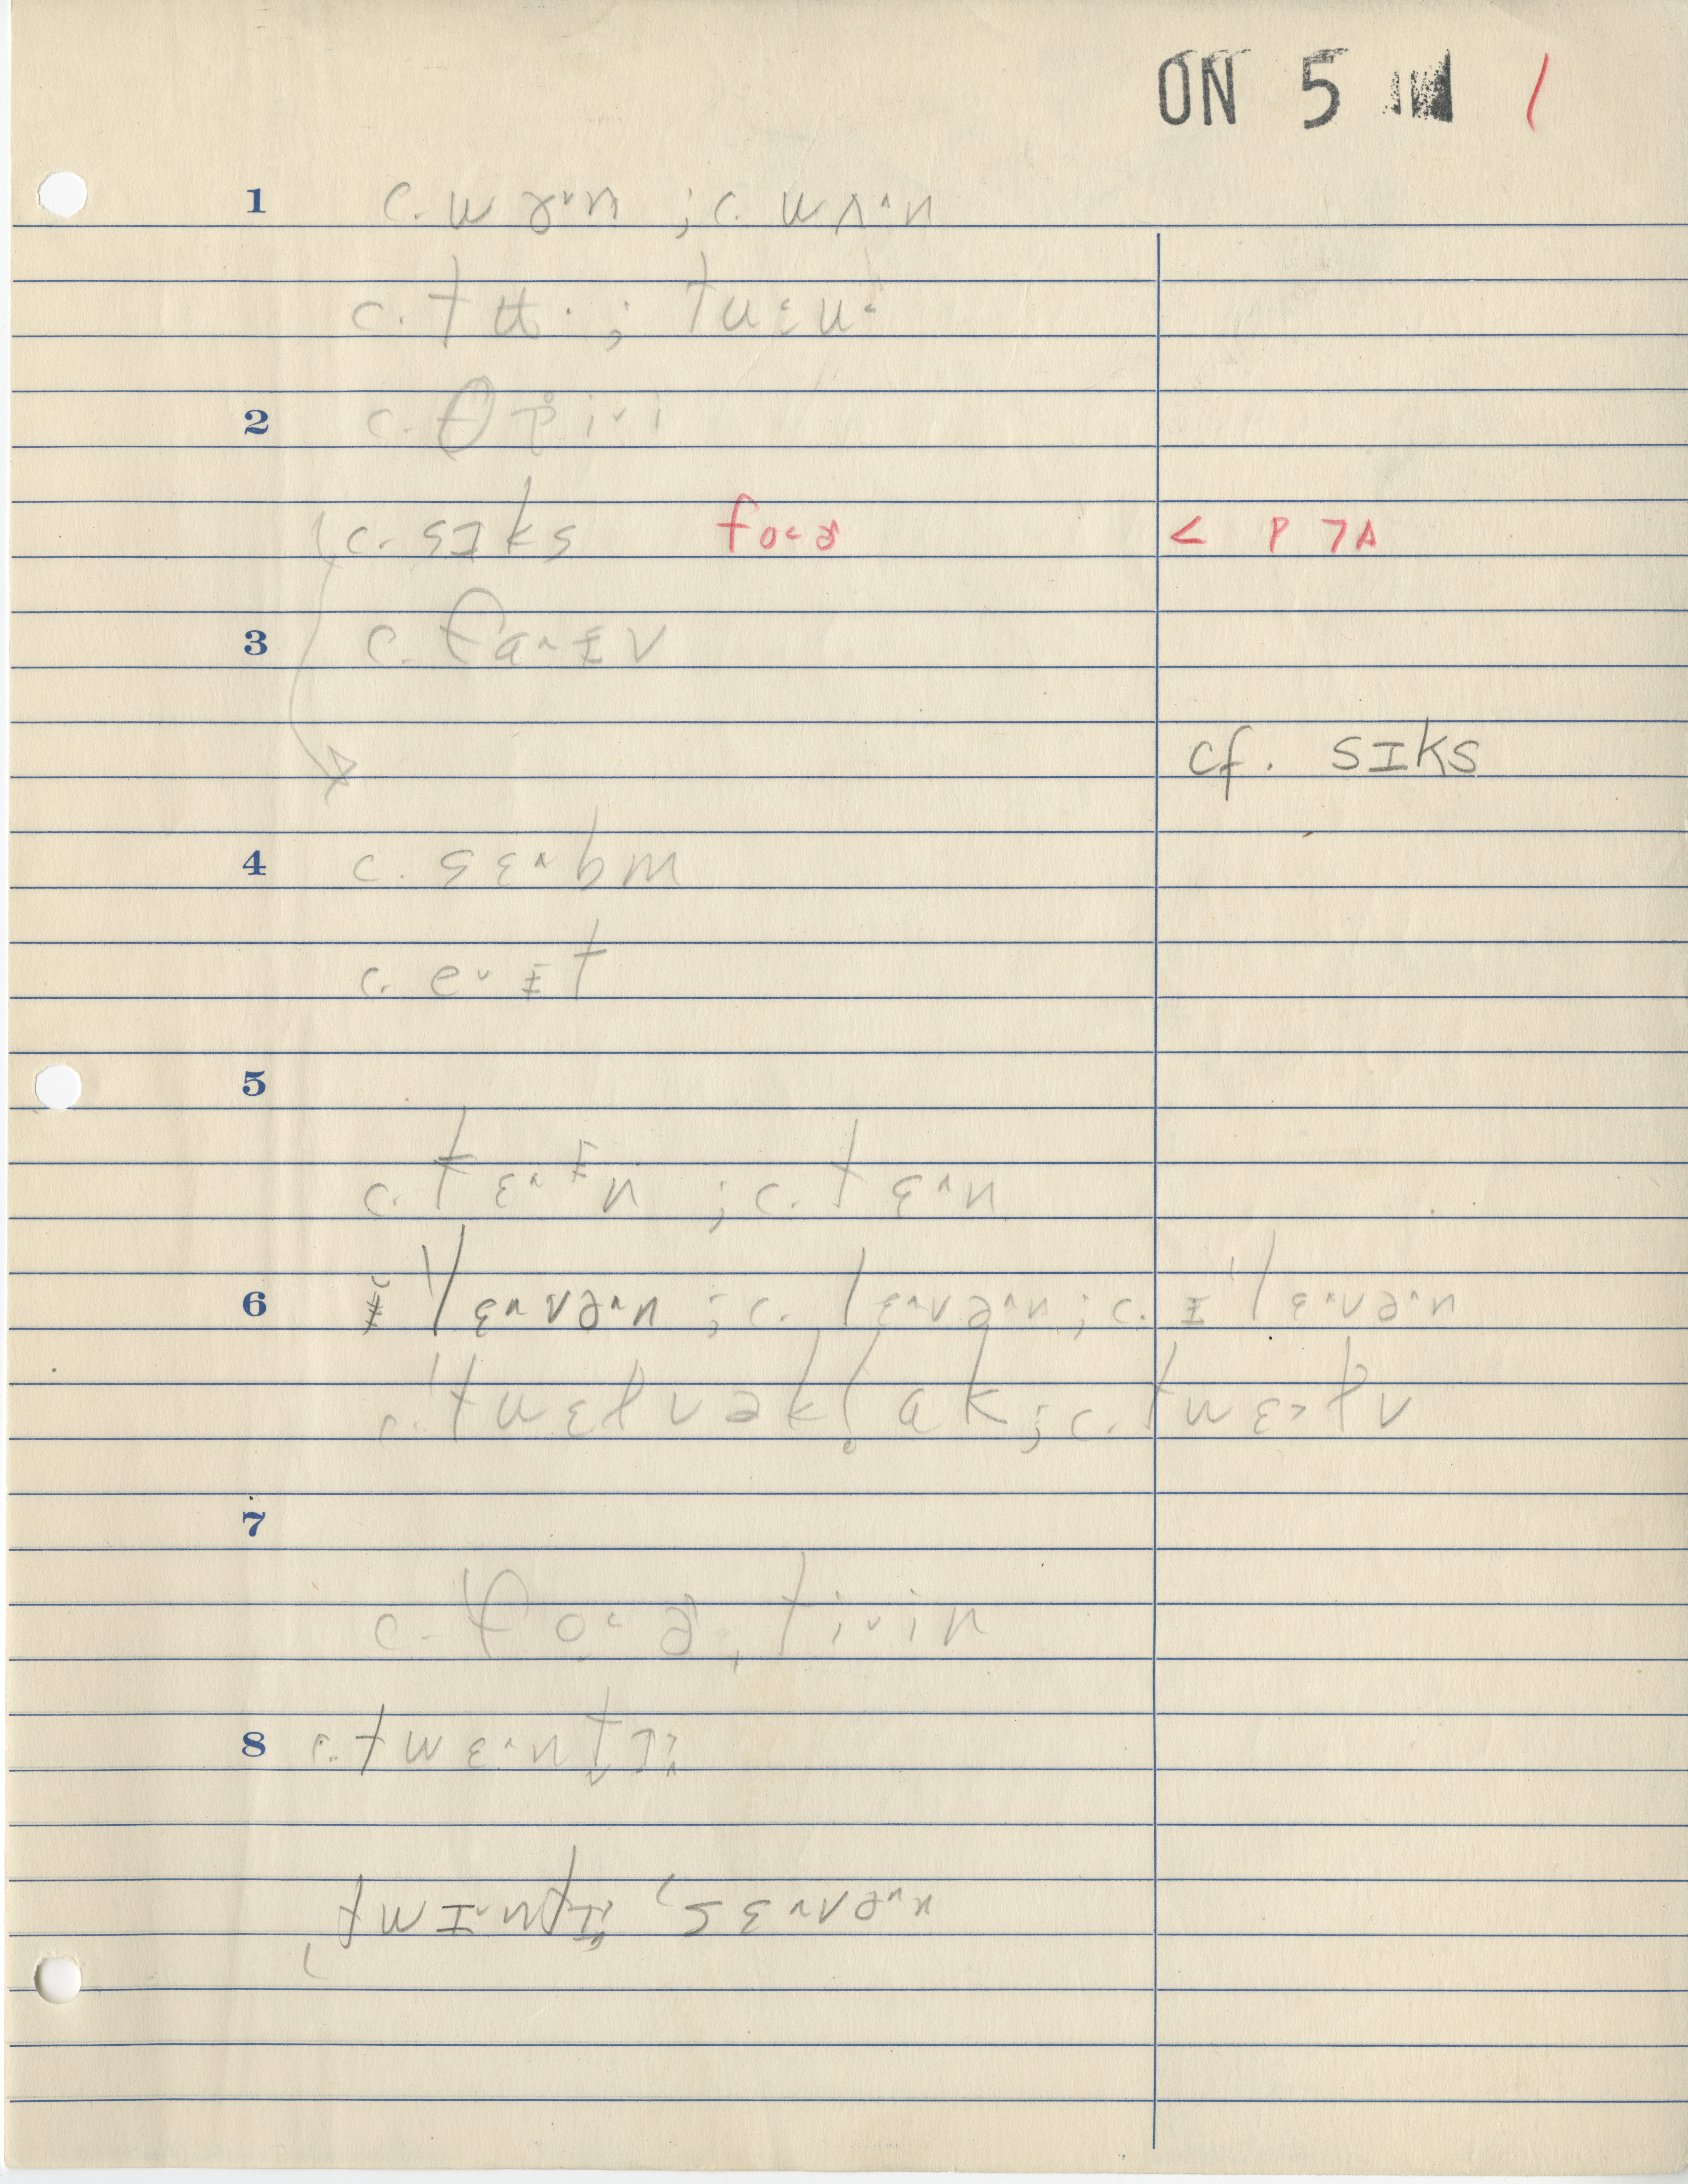 ON 5 1
1 c. wɤ˅n ; c. wʌ˄n
c. tʉ· ; tu
2 c. θ
c. sɪks fo˂ɚ < P 7A
3 c. fa˄ɪ̵v
cf. sɪks
4 c. sɛ˄bm
c. e˅ɪ̵t
5
c. tɛ˄ɪ̵n ; c. tɛ˄n
6 ɪ̵ˈlɛ˄və˄n ; c. lɛ˄və˄n ; c. ɪ̵ˈlɛ˄və˄n
c. ; c. twɛ˃ɫv
7
c. fo˂ɚˌti˅in
8 c. twɛ˄n
ˌtwɪ˅n ˈsɛ˄və˄n